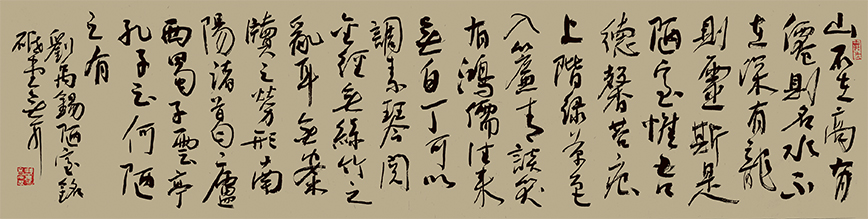 山不在高有
僊則名水不
在深有龍
則靈斯是
陋室惟吾
德馨苔痕
上階綠草色
入簾青談笑
有鴻儒往來
無白丁可以
調素琴閱
金經無絲竹之
亂耳無案
牘之勞形南
陽諸葛廬
西蜀子雲亭
孔子云何陋
之有
劉禹錫陋室銘